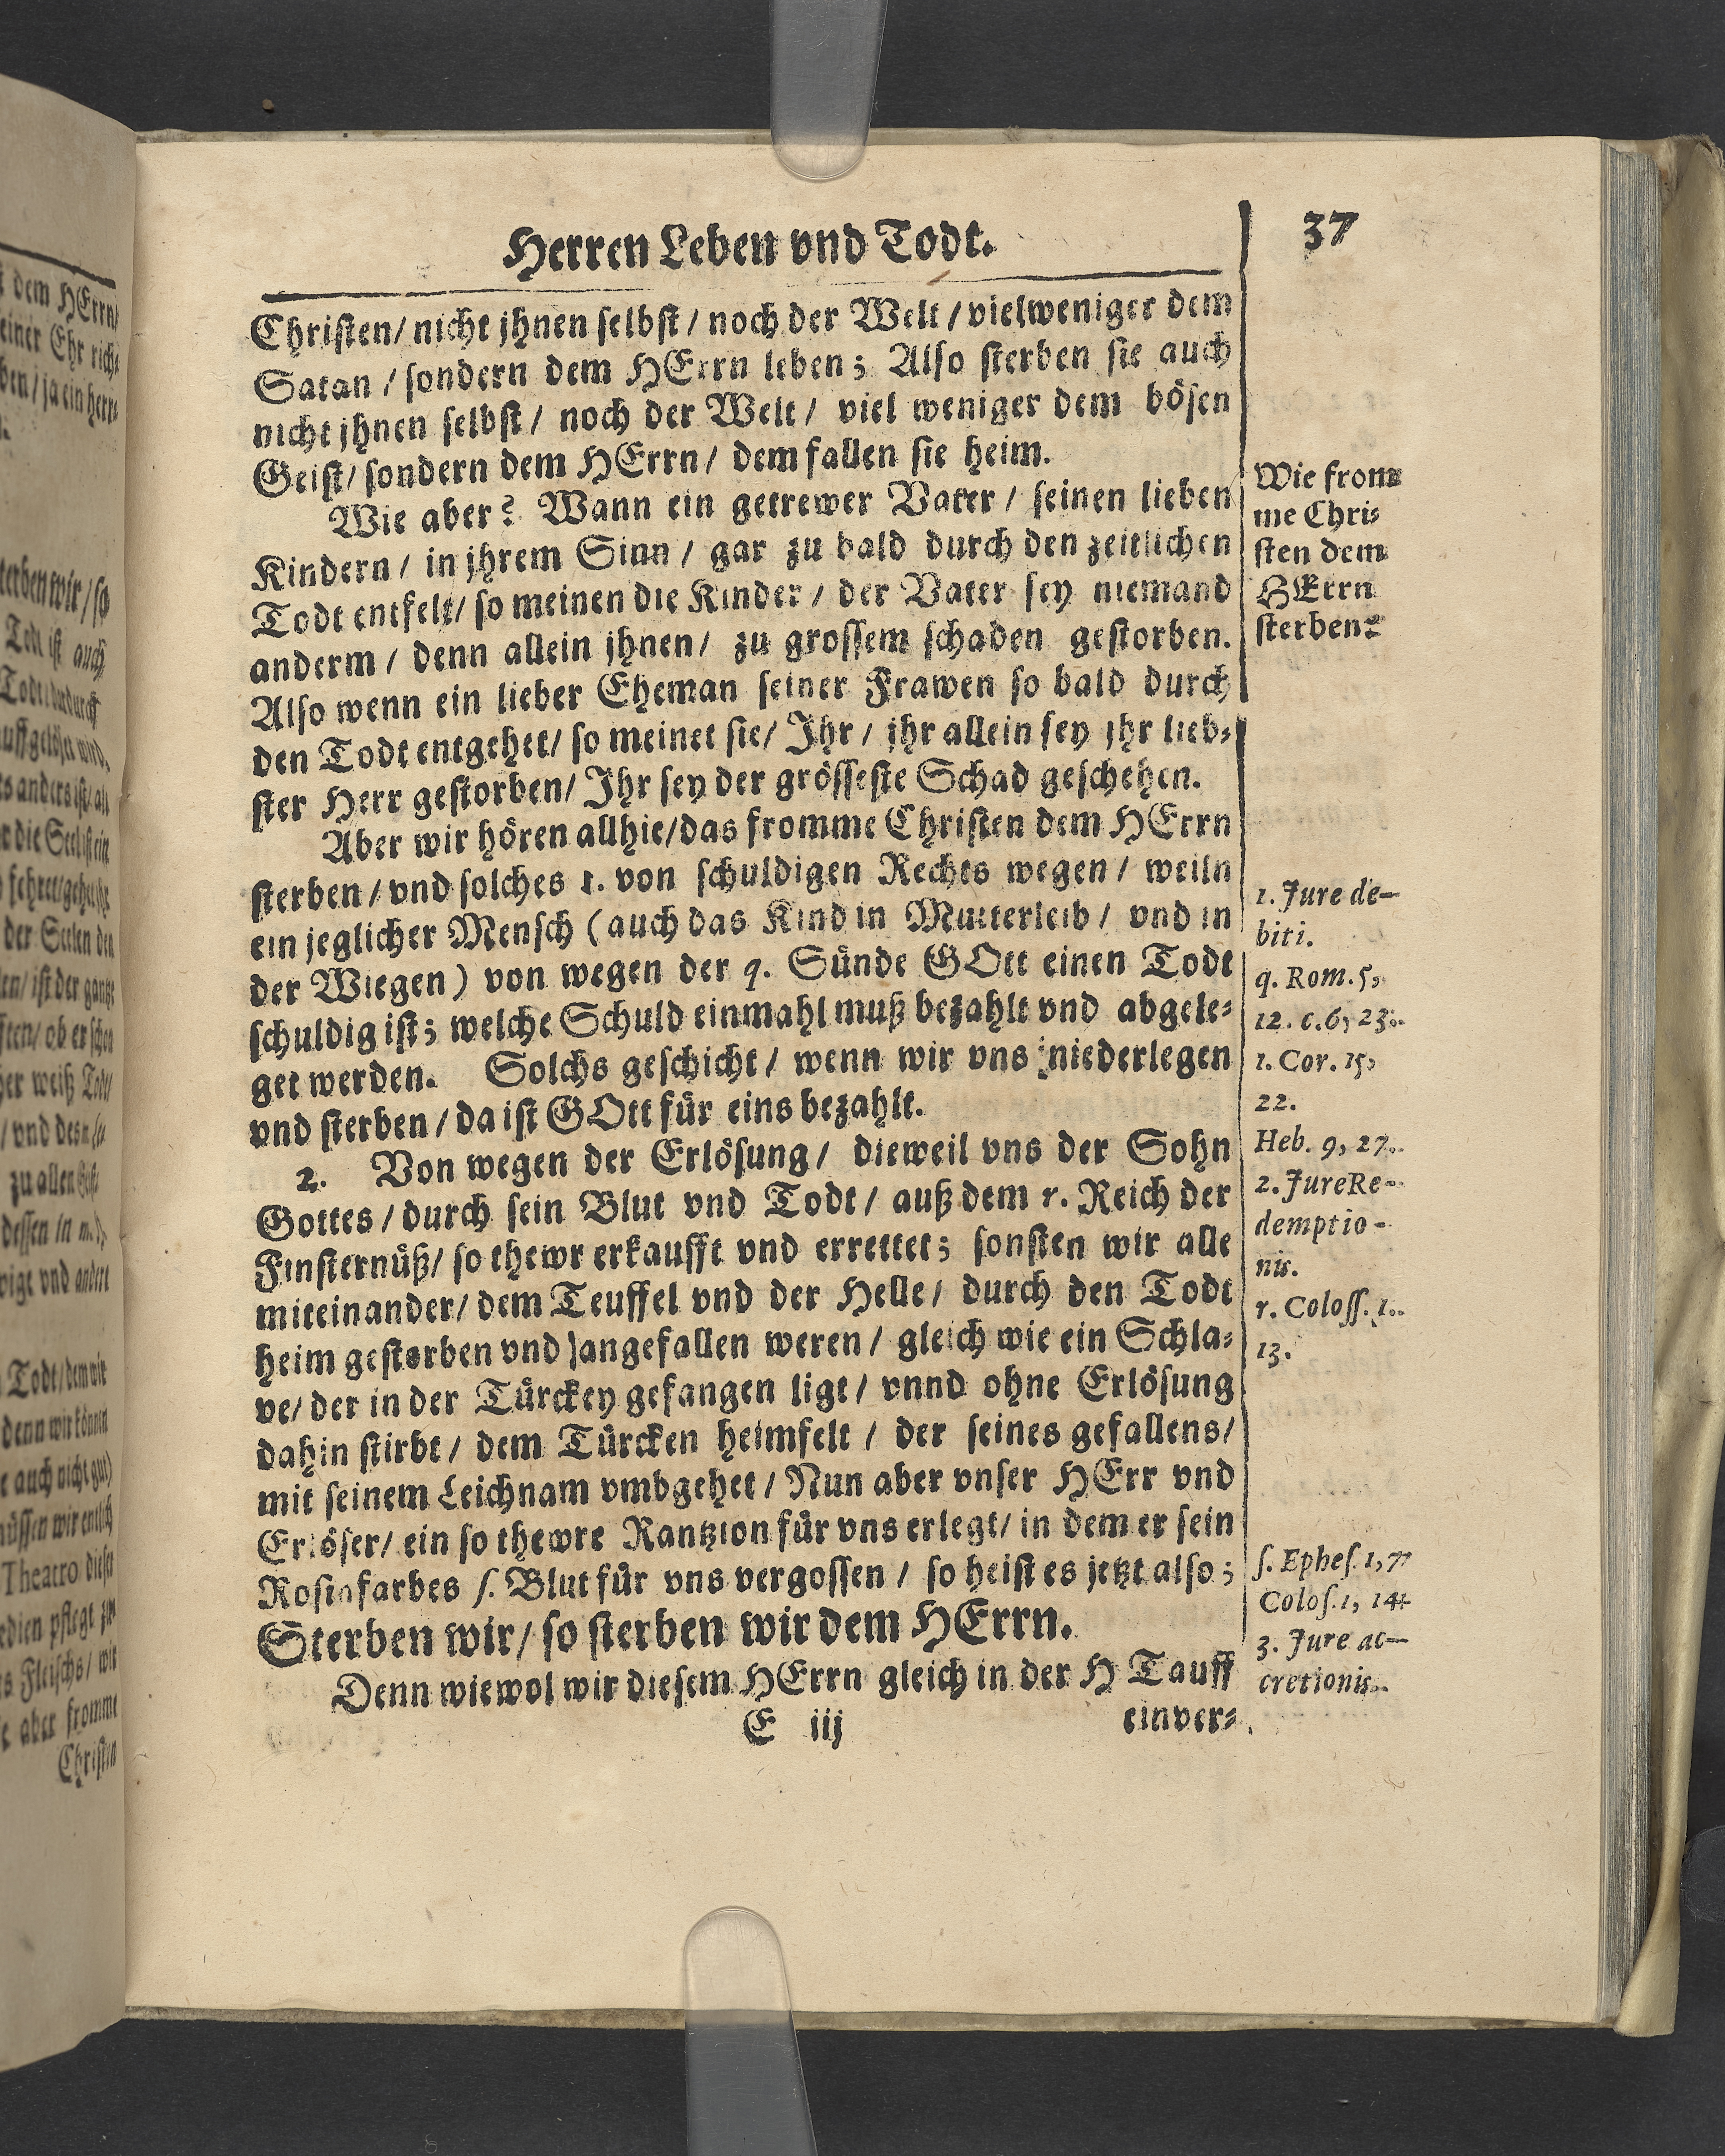 Herren Leben vnd Todt.
37
Christen/ nicht jhnen selbst / noch der Welt / vielweniger dem
Satan / sondern dem HErrn leben; Also sterben sie auch
nicht jhnen selbst / noch der Welt / viel weniger dem bösen
Geist/ sondern dem HErrn / dem fallen sie heim.
Wie aber? Wann ein getrewer Vater / seinen lieben
Kindern / in jhrem Sinn / gar zu bald durch den zeitlichen
Todt entfelt/ so meinen die Kinder / der Vater sey niemand
anderm / denn allein jhnen / zu grossem schaden gestorben.
Also wenn ein lieber Eheman seiner Frawen so bald durch
den Todt entgehet/ so meinet sie/ Ihr / jhr allein sey jhr lieb-
ster Herr gestorben/ Ihr sey der grösseste Schad geschehen.
Aber wir hören allhie/das fromme Christen dem HErrn
sterben / vnd solches 1. von schuldigen Rechts wegen / weiln
ein jeglicher Mensch (auch das Kind in Mutterleib / vnd in
der Wiegen) von wegen der q. Sünde GOtt einen Todt
schuldig ist; welche Schuld einmahl muß bezahlt vnd abgele-
get werden. Solchs geschicht / wenn wir vns niederlegen
vnd sterben / da ist GOtt für eins bezahlt.
2. Von wegen der Erlösung / dieweil vns der Sohn
Gottes / durch sein Blut vnd Todt / auß dem r. Reich der
Finsternüß/ so thewr erkaufft vnd errettet; sonsten wir alle
miteinander/ dem Teuffel vnd der Helle / durch den Todt
heim gestorben vnd )angefallen weren / gleich wie ein Schla-
ve/ der in der Türckey gefangen ligt / vnnd ohne Erlösung
dahin stirbt / dem Türcken heimfelt / der seines gefallens/
mit seinem Leichnam vmbgehet / Nun aber vnser HErr vnd
Erlöser/ ein so thewre Rantzion für vns erlegt/ in dem er sein
Rosinfarbes ſ. Blut für vns vergossen / so heist es jetzt also;
Sterben wir/ so sterben wir dem HErrn.
Denn wiewol wir diesem HErrn gleich in der H Tauff
E iij
einver-
Wie from-
me Chri-
sten dem
HErrn
sterben?
1. Jure de-
biti.
q. Rom. 5,
12. c. 6, 23.
1. Cor. 15,
22.
Heb. 9, 27.
2. Jure Re-
demptio-
nis.
r. Coloss. 1.
13.
ſ. Ephes. 1, 7
Colos. 1, 14
3. Jure ac-
cretionis.